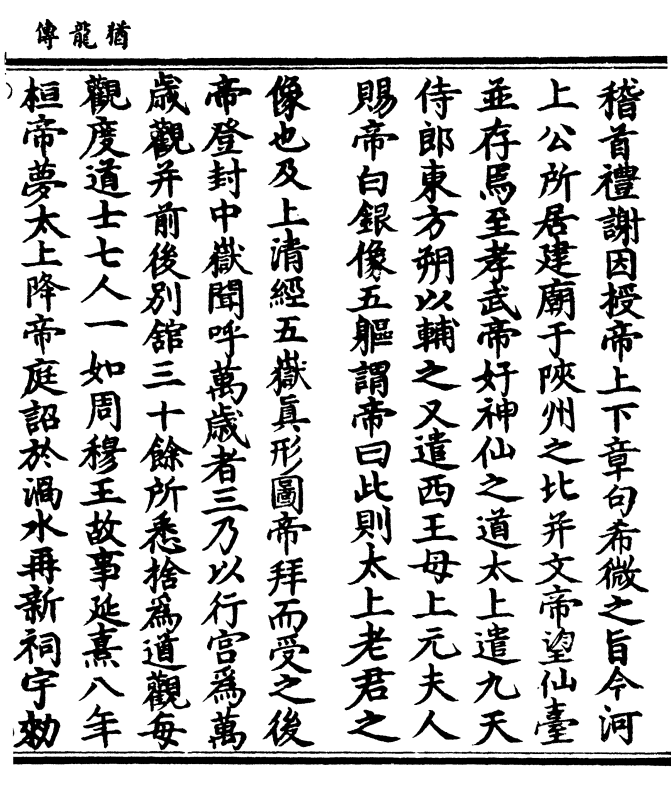 猶龍傳
稽首禮謝因授帝上下章句希微之旨今河
上公所居建廟于陝州之北并文帝望仙臺
並存焉至孝武帝好神仙之道太上遣九天
侍郎東方朔以輔之又遣西王母上元夫人
賜帝白銀像五軀謂帝曰此則太上老君之
像也及上清經五嶽真形圖帝拜而受之後
帝登封中嶽聞呼萬歲者三乃以行宫爲萬
歲觀并前後別舘三十餘所悉捨爲道觀每
觀度道士七人一如周穆王故事延熹八年
桓帝夢太上降帝庭詔於渦水再新祠宇勑